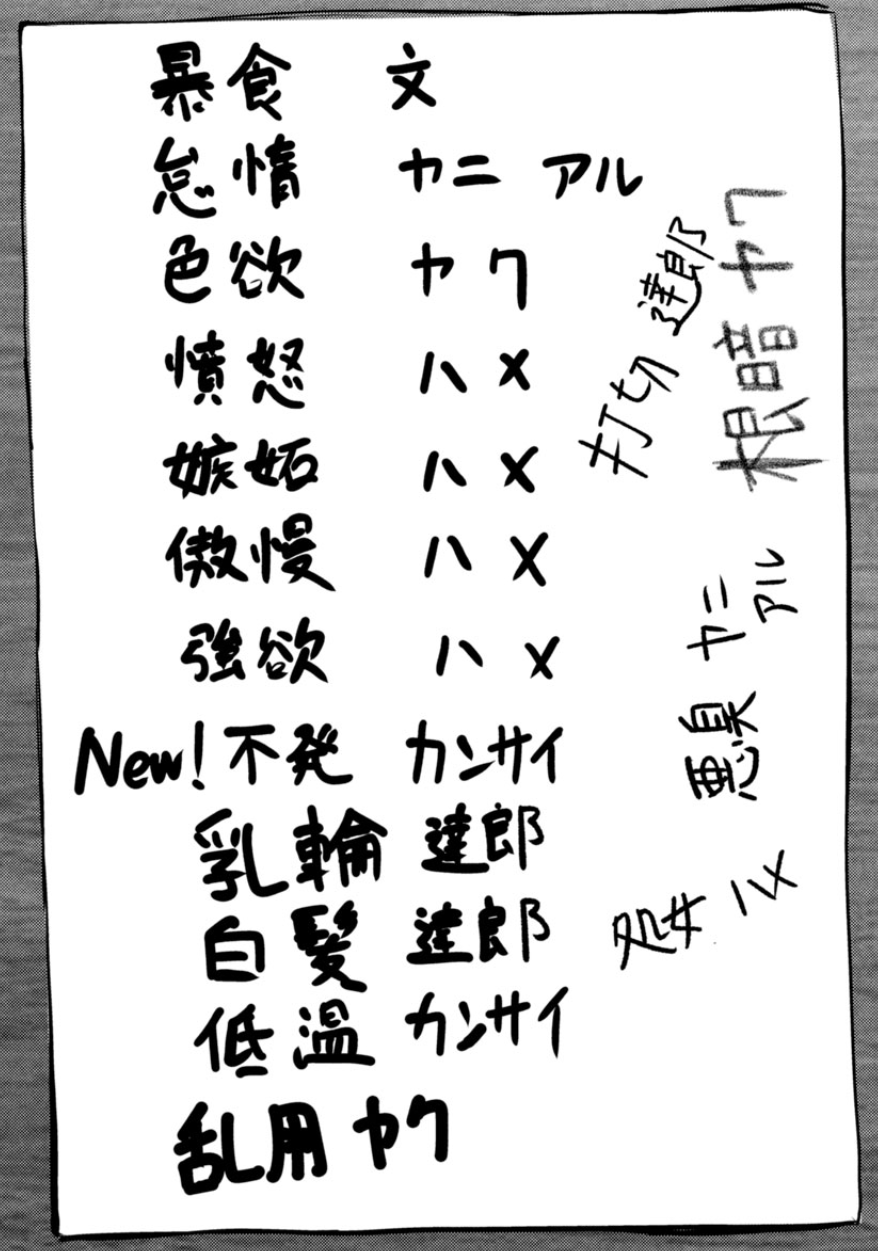 暴食 文
怠惰 ヤニ アル
色欲 ヤク
憤怒 ハメ
嫉妬 ハメ
傲慢 ハメ
強欲 ハメ
New!不発 カンサイ
乳輪 達郎
白髪 達郎
低温 カンサイ
乱用 ヤク
打切 達郎
根暗 ヤク
悪臭 ヤニ アル
処女 ハメ